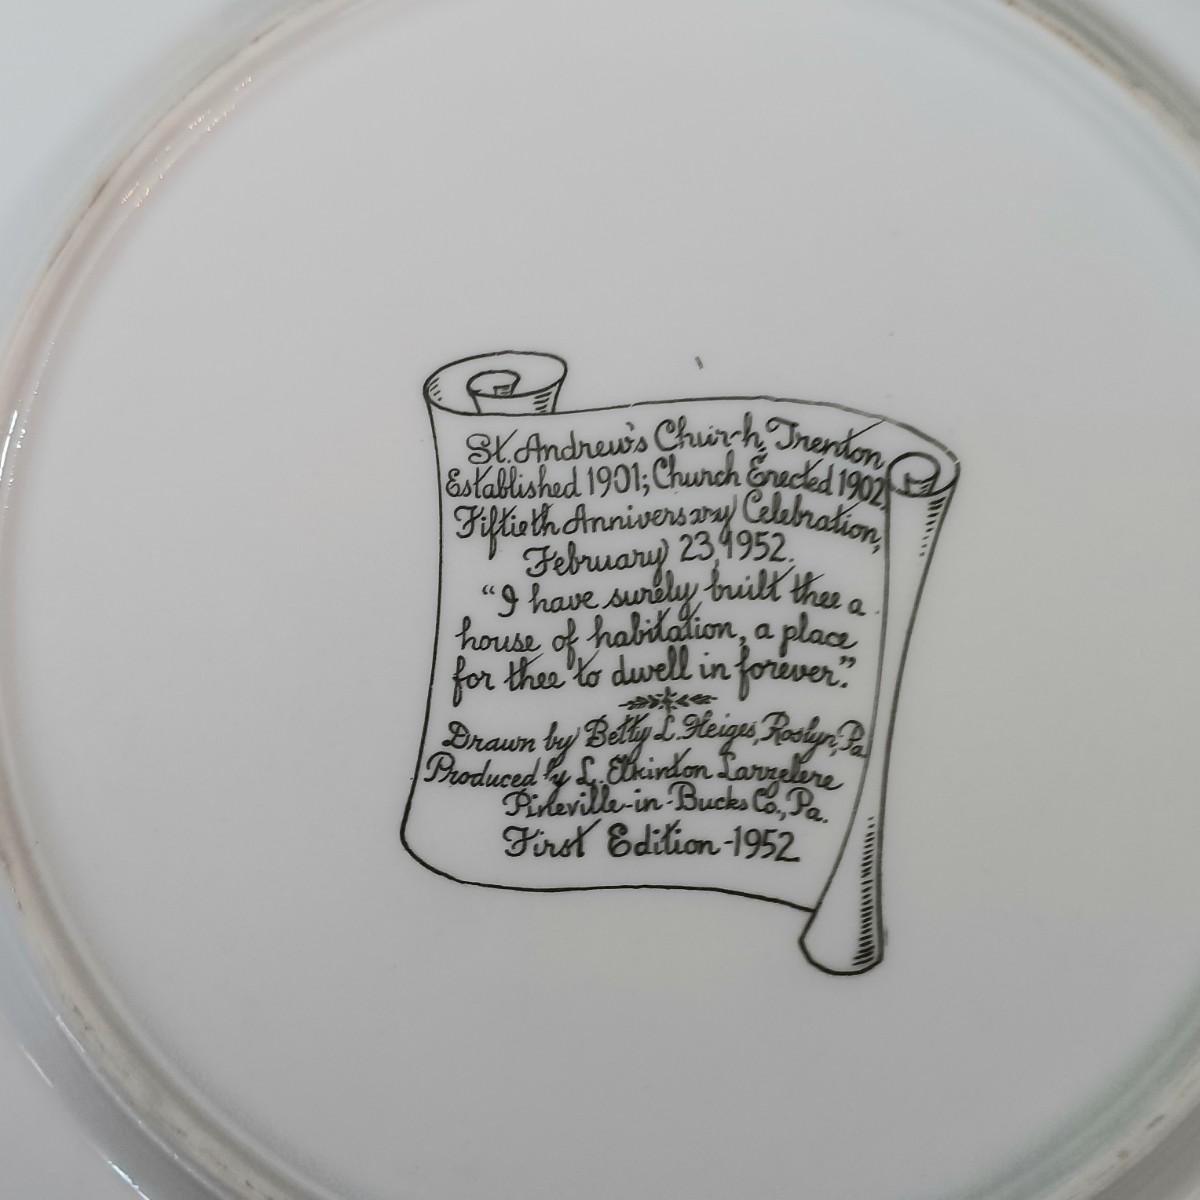 St. Andrew's Church, Trenton
Established 1901; Church Erected 1902
Fiftieth Anniversary Celebration,
February 23, 1952.
"I have surely built thee a
house of habitation, a place
for thee to dwell in forever."
Drawn by Betty L. Heiges, Roslyn, Pa.
Produced by L. Elkinton Larzelere
Pineville-in-Bucks Co., Pa.
First Edition-1952